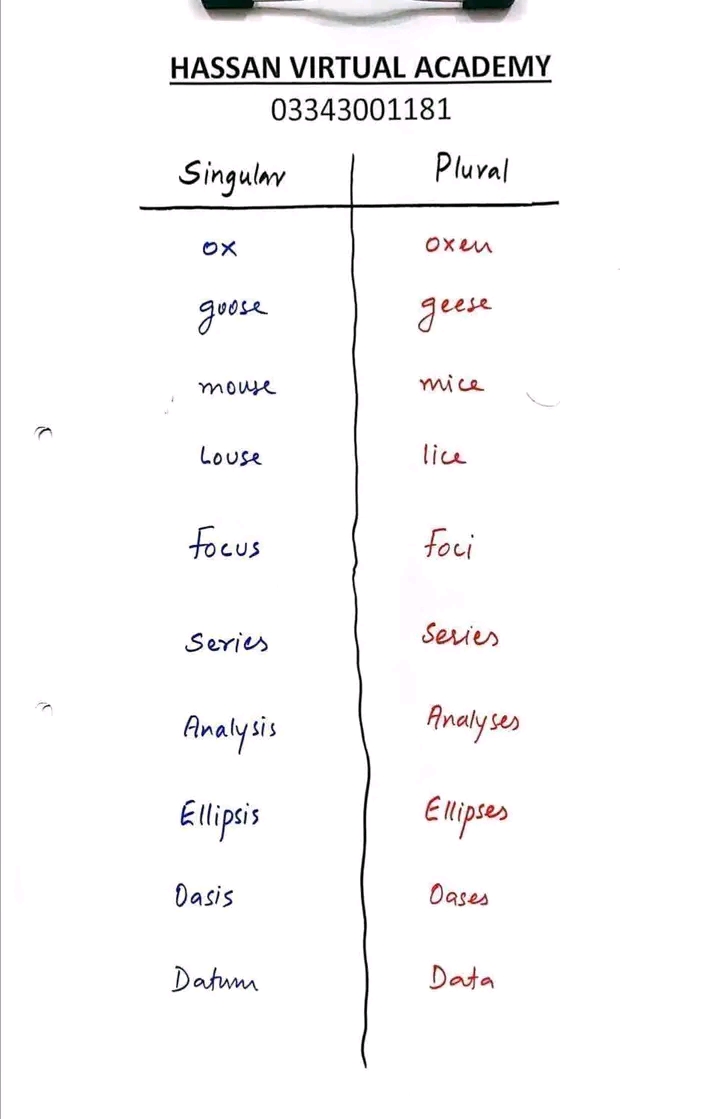 HASSAN VIRTUAL ACADEMY
03343001181
Singular Plural
ox oxen
goose geese
mouse mice
Louse lice
Focus Foci
Series Series
Analysis Analyses
Ellipsis Ellipses
Oasis Oases
Datum Data